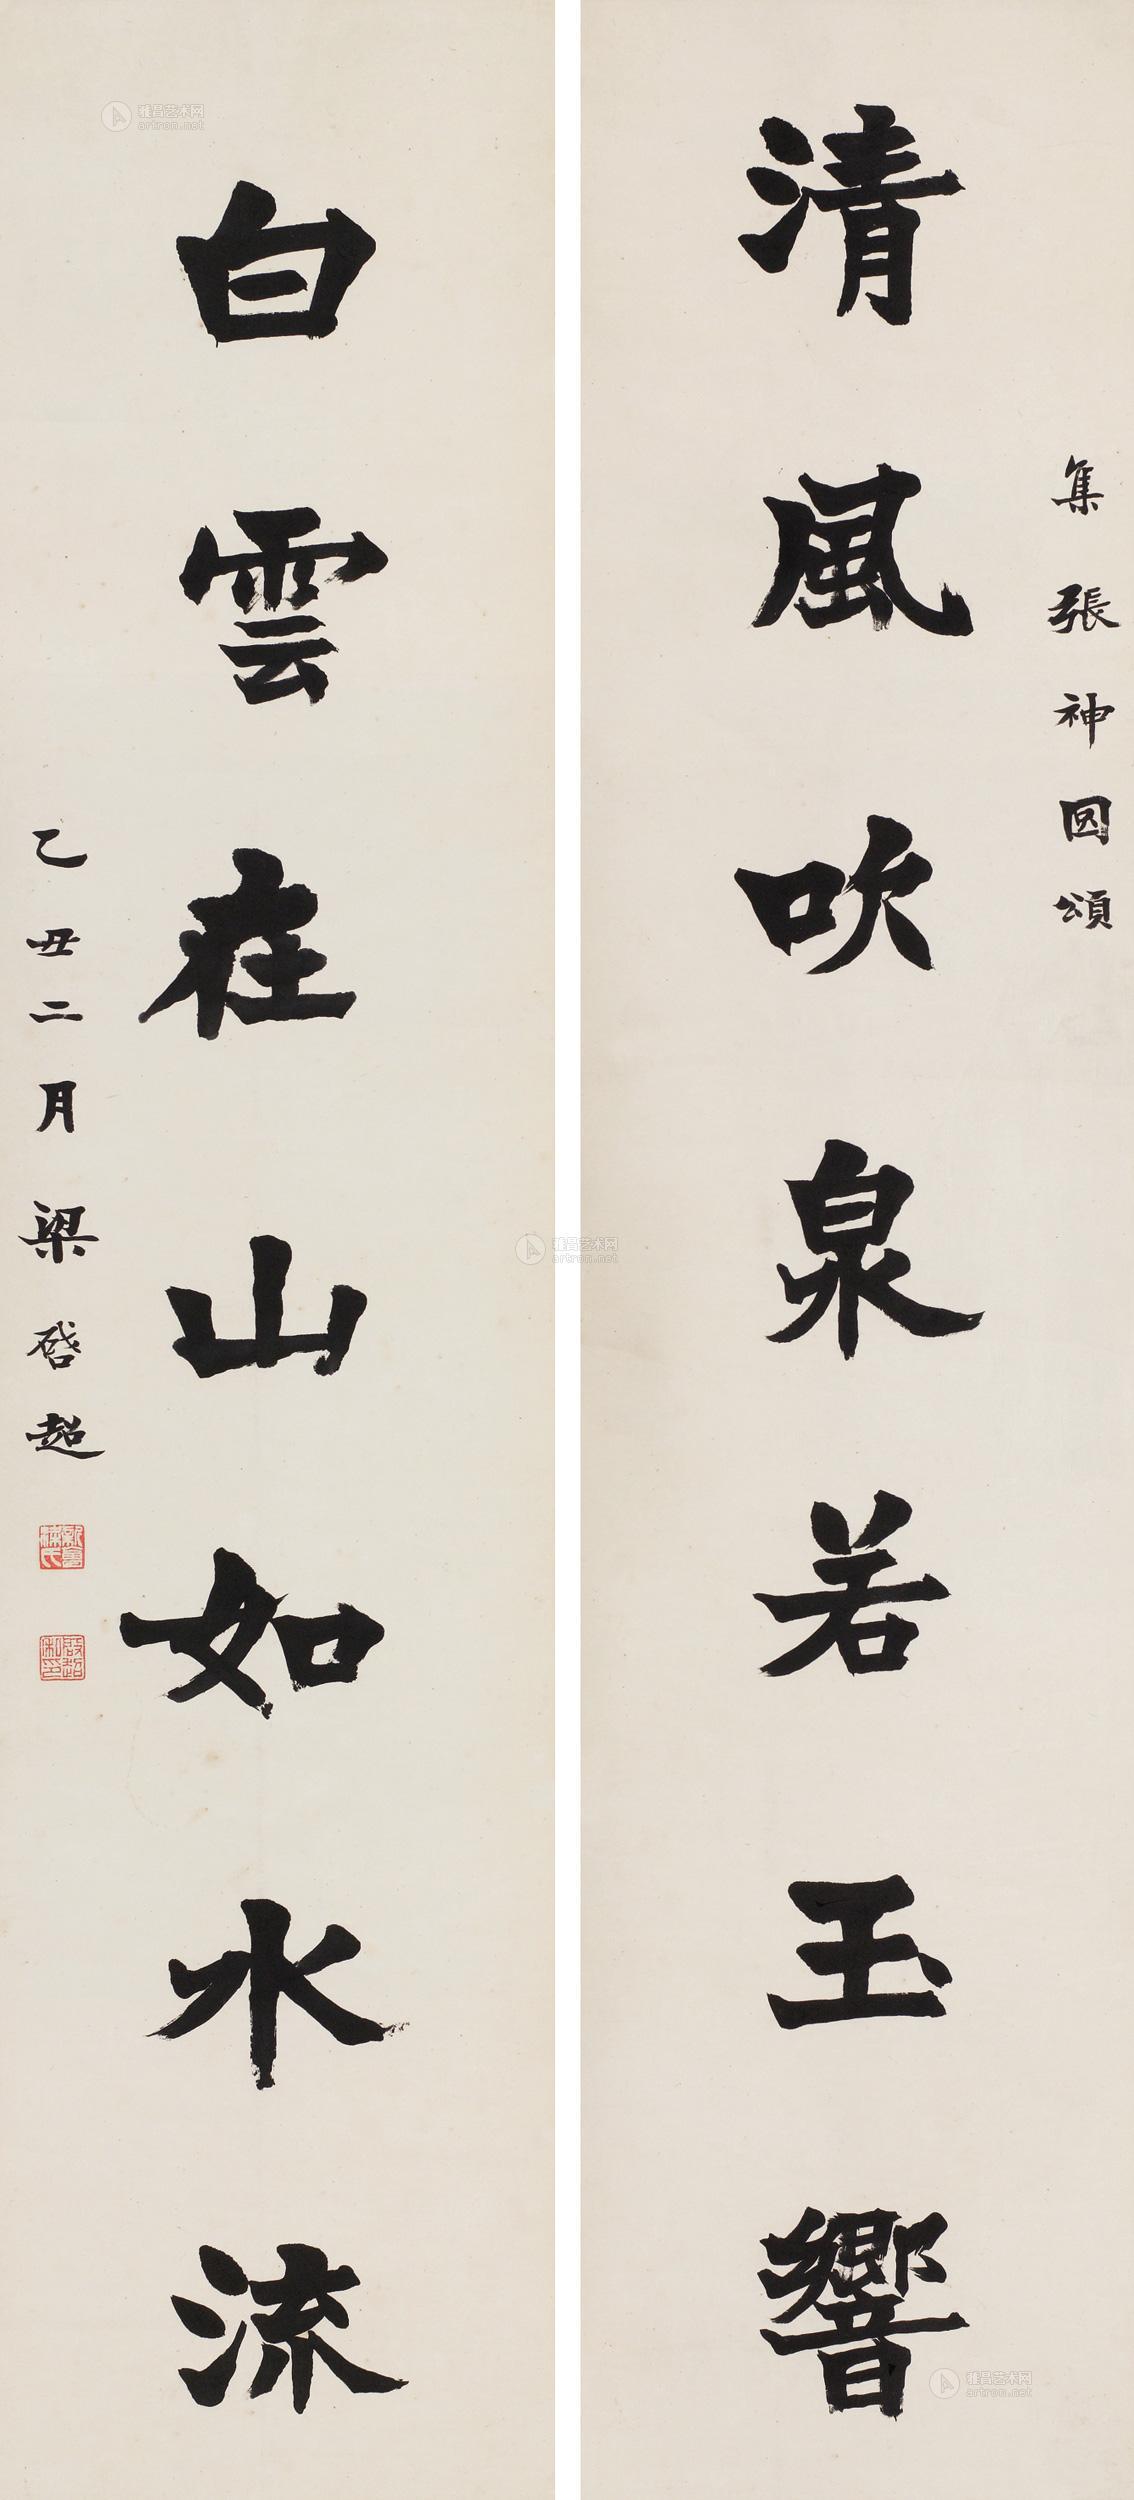 集張神囧頌
清風吹泉若玉響
白雲在山如水流
乙丑二月梁啓超
新會梁氏
啟超私印
雅昌艺术网
artron.net
雅昌艺术网
artron.net
雅昌艺术网
artron.net